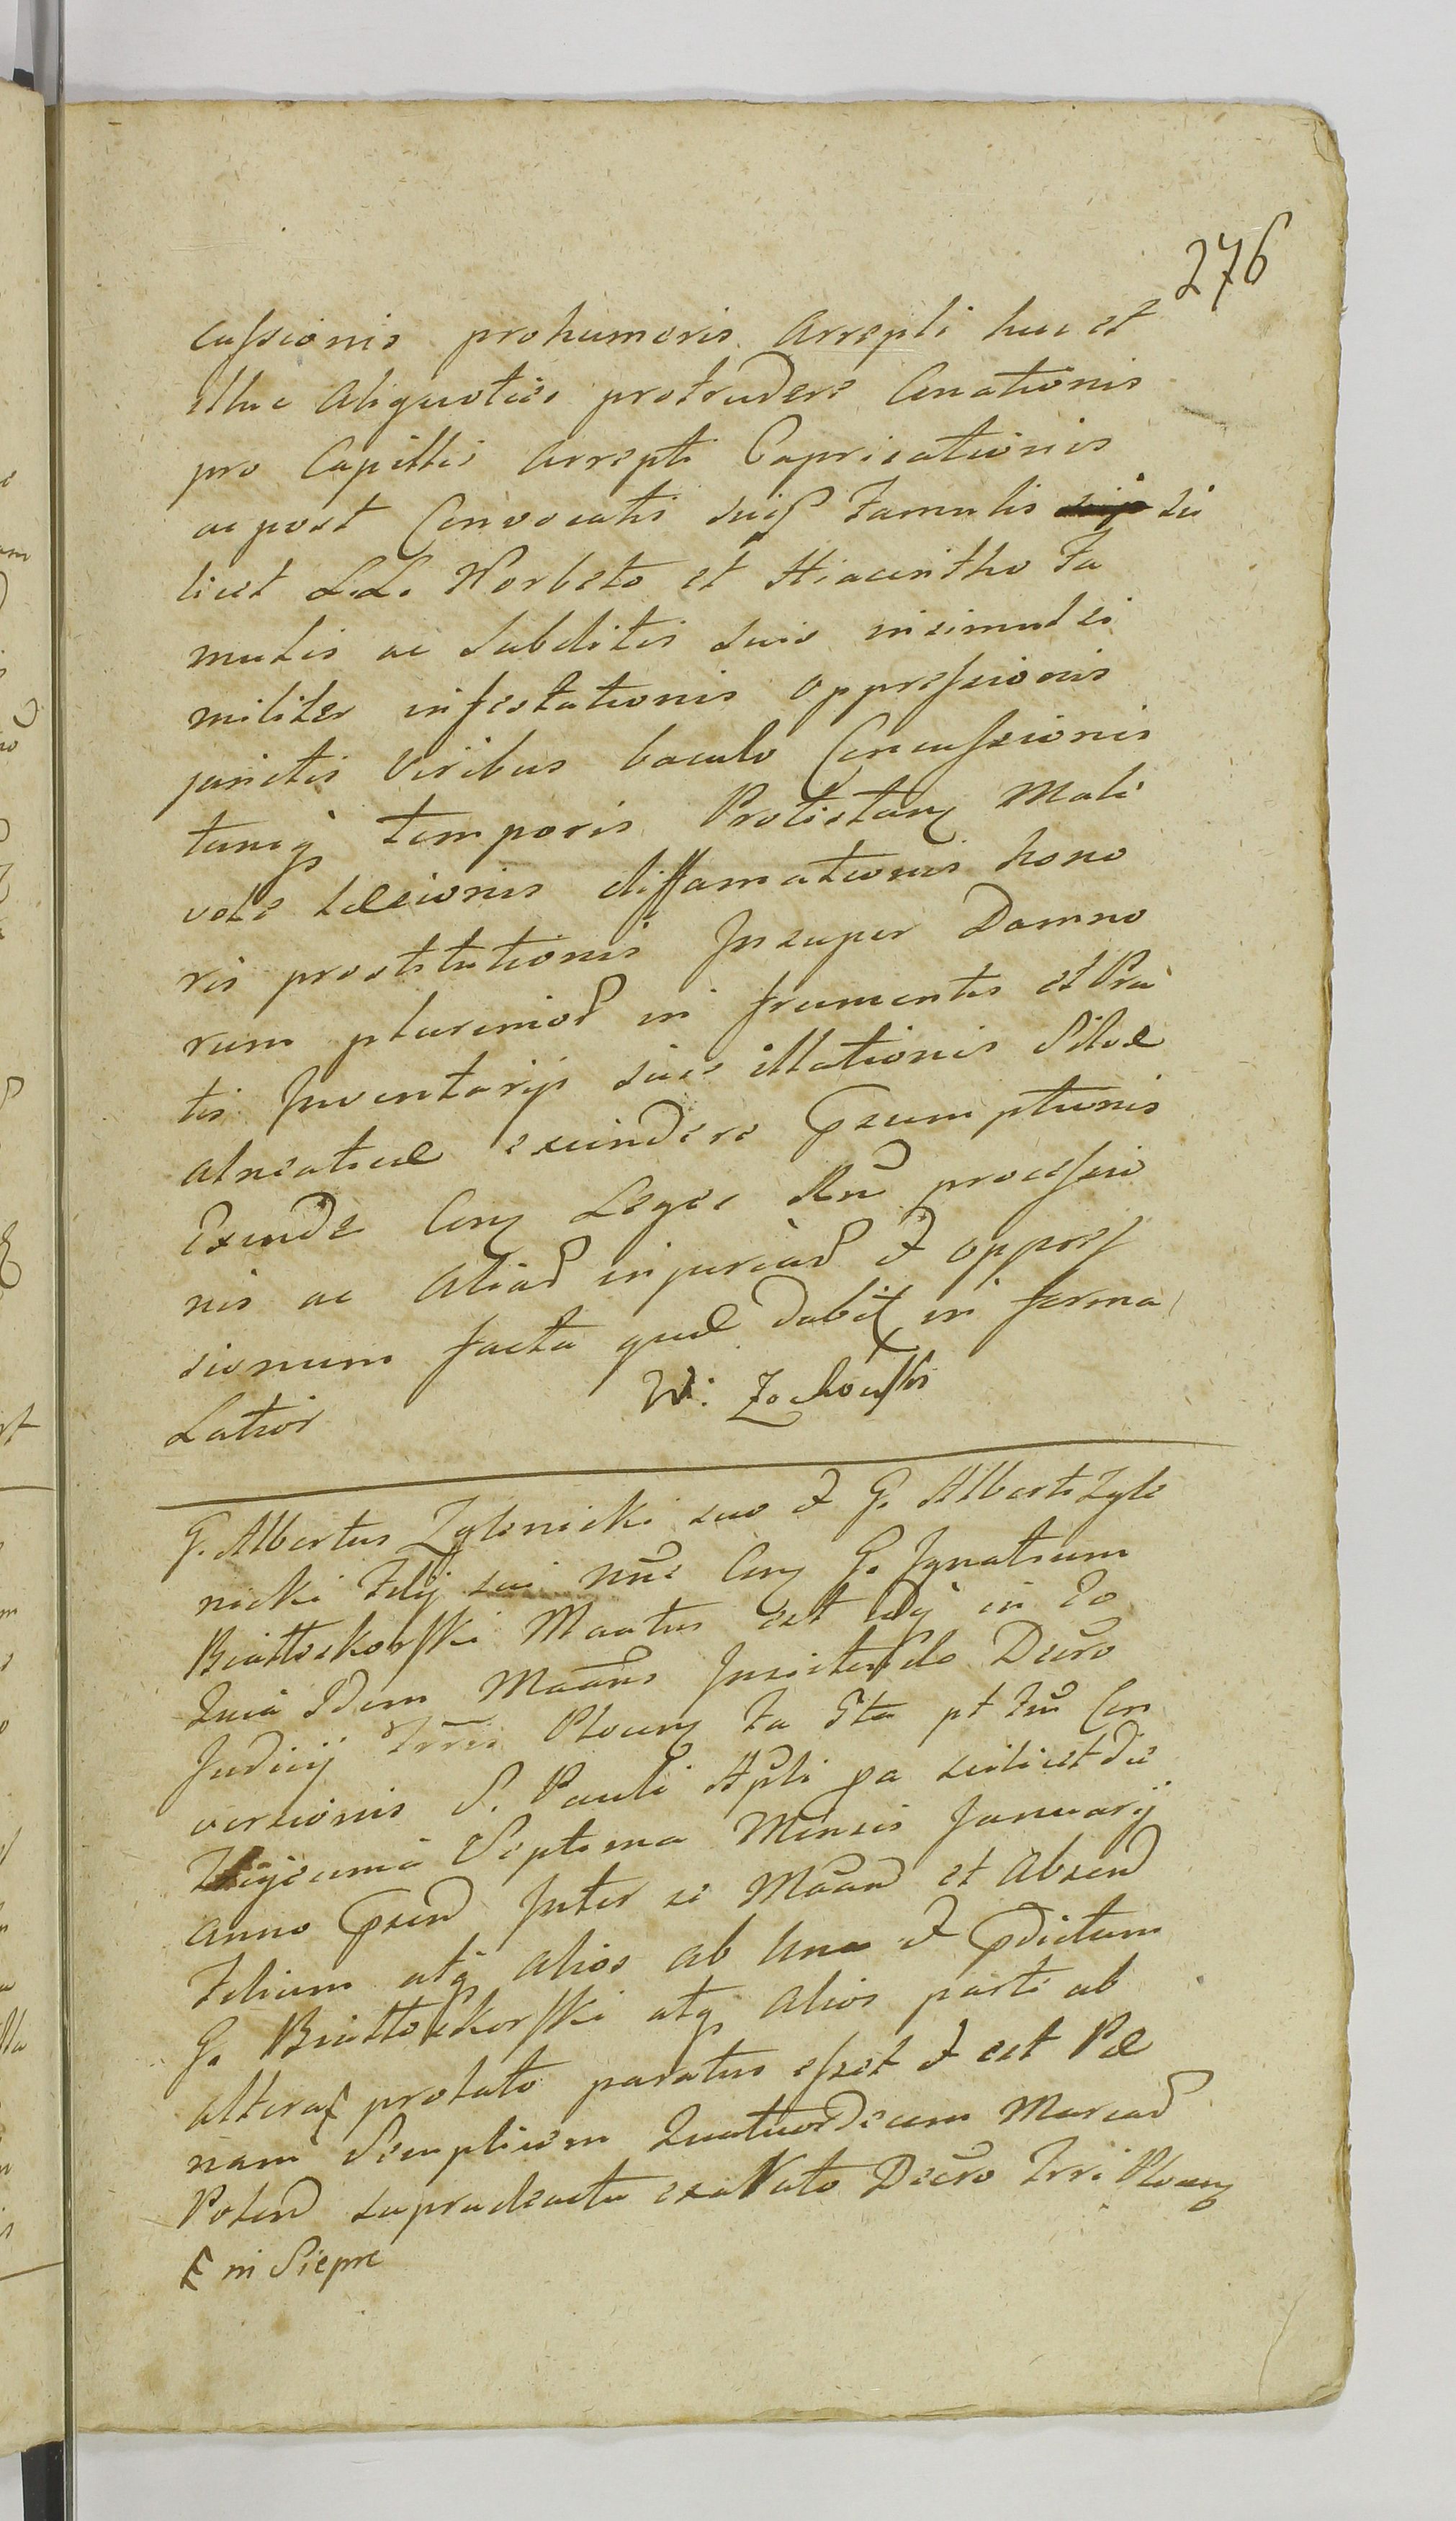 276
cussionis prohumeris Arrepti huc et
illuc Aliquoties protrudere Conationis
pro Capillis Arrepti Capricationis
ac post Convocatis suis Famulis sci
licet L.L. Norberto et Hiacintho Fa
mulis ac Subditis suis insimul si
militer infestationis oppressionis
junctis Viribus baculo Concussionis
tuncqз temporis Protestan Male
vole Læsionis diffamationis hono
ris prostitutionis Insuper Damno
rum plurimor in frumentis et Pra
tis Inventarijs suis illationis Silvæ
alneaticæ excindere Præsumptionis
Exinde Con Leges Rni processio
nis ac Aliar injuriar et oppres
sionum facta quæ dabit in forma
Latior
W. Zochowski
G. Albertus Zglenicki suo et G. Alberti Zgle
nicki Filij sui nne Con G. Ignatium
Białłoskorski Maatus est Idq in Eo
Quia Idem Maans Insistendo Decro
Judicij Trris Plocen Fa 5ta pt Fm Con
versionis S. Pauli Apli pa scilicet die
Trigesima Septima Mensis Januarij
anno Præsen Inter se Maan et Absen
Filium atqз Alios ab Una et Prædictum
G. Białłoskorski atqз Alios parte ab
altera prolato paratus esset et est Pæ
nam Simplicem Quatuordecim Marcar
Polon supra de actu exa Nato Decro Trri Plocen
in Sieprc